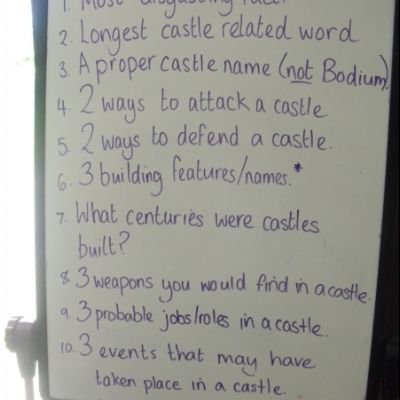 1. Most disgusting fact.
2. Longest castle related word.
3. A proper castle name (not Bodium).
4. 2 ways to attack a castle
5. 2 ways to defend a castle.
6. 3 building features/names.*
7. What centuries were castles
built?
8. 3 weapons you would find in a castle.
9. 3 probable jobs/roles in a castle.
10. 3 events that may have
taken place in a castle.